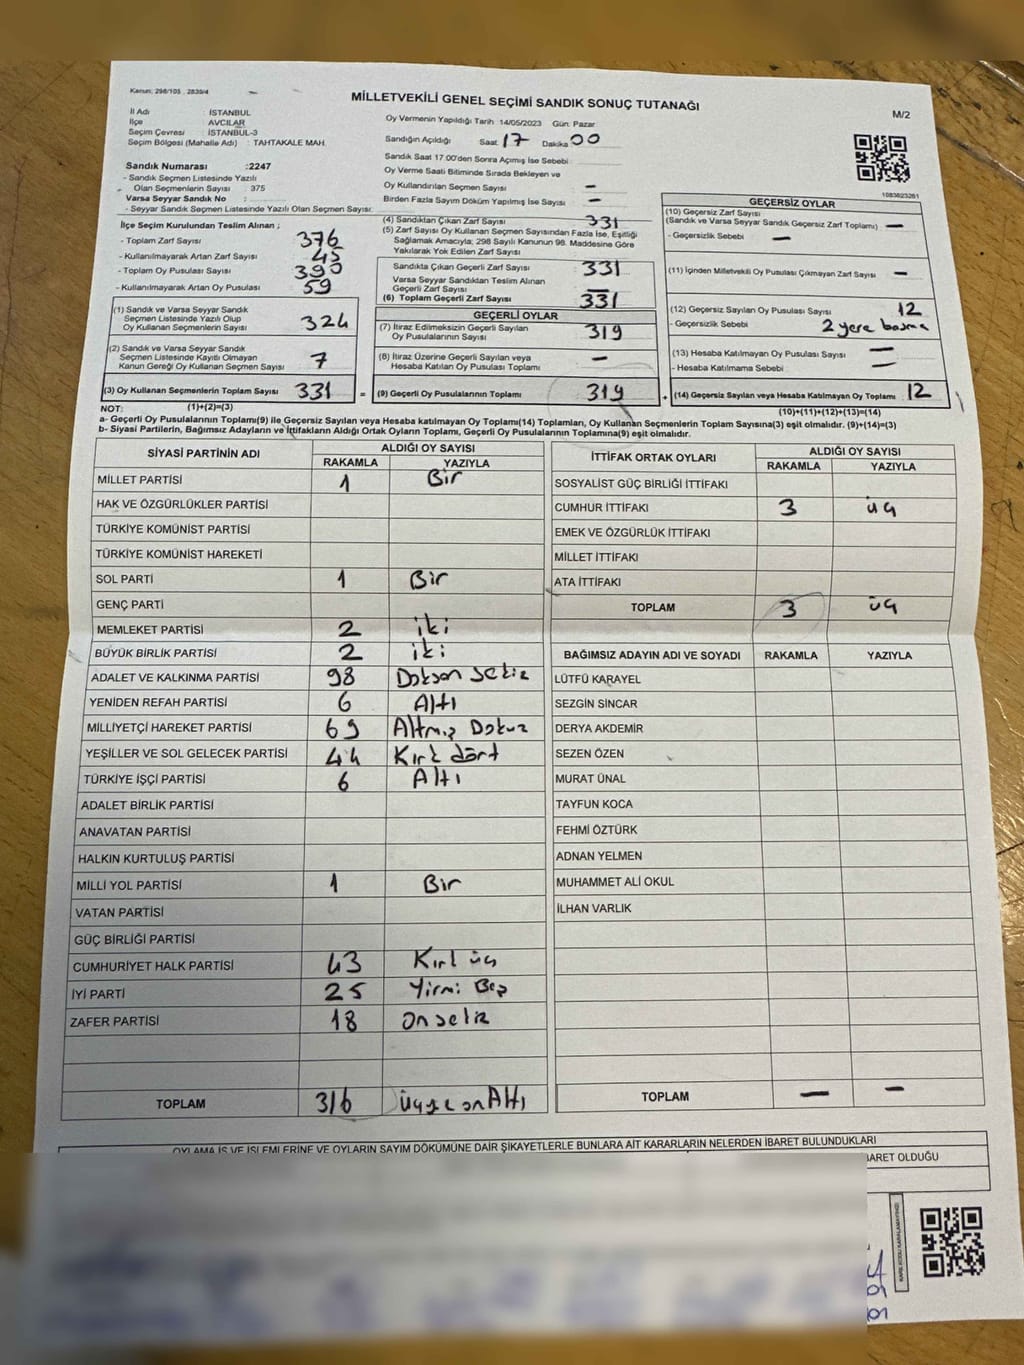 Kanun: 298/105 , 2839/4
MİLLETVEKİLİ GENEL SEÇİMİ SANDIK SONUÇ TUTANAĞI
M/2
İl Adı : İSTANBUL
İlçe : AVCILAR
Seçim Çevresi : İSTANBUL-3
Seçim Bölgesi (Mahalle Adı) : TAHTAKALE MAH.
Sandık Numarası :2247
- Sandık Seçmen Listesinde Yazılı
Olan Seçmenlerin Sayısı : 375
Varsa Seyyar Sandık No :
- Seyyar Sandık Seçmen Listesinde Yazılı Olan Seçmen Sayısı:
İlçe Seçim Kurulundan Teslim Alınan ;
- Toplam Zarf Sayısı : 376
- Kullanılmayarak Artan Zarf Sayısı : 45
- Toplam Oy Pusulası Sayısı : 390
- Kullanılmayarak Artan Oy Pusulası : 59
(1) Sandık ve Varsa Seyyar Sandık
Seçmen Listesinde Yazılı Olup
Oy Kullanan Seçmenlerin Sayısı : 324
(2) Sandık ve Varsa Seyyar Sandık
Seçmen Listesinde Kayıtlı Olmayan
Kanun Gereği Oy Kullanan Seçmen Sayısı : 7
(3) Oy Kullanan Seçmenlerin Toplam Sayısı : 331 =
Oy Vermenin Yapıldığı Tarih 14/05/2023 Gün: Pazar
Sandığın Açıldığı Saat: 17 Dakika: 00
Sandık Saat 17.00'den Sonra Açımış İse Sebebi :
Oy Verme Saati Bitiminde Sırada Bekleyen ve
Oy Kullandırılan Seçmen Sayısı : -
Birden Fazla Sayım Döküm Yapılmış İse Sayısı : -
(4) Sandıktan Çıkan Zarf Sayısı : 331
(5) Zarf Sayısı Oy Kullanan Seçmen Sayısından Fazla İse, Eşitliği
Sağlamak Amacıyla; 298 Sayılı Kanunun 98. Maddesine Göre
Yakılarak Yok Edilen Zarf Sayısı :
Sandıkta Çıkan Geçerli Zarf Sayısı : 331
Varsa Seyyar Sandıktan Teslim Alınan
Geçerli Zarf Sayısı : -
(6) Toplam Geçerli Zarf Sayısı : 331
GEÇERLİ OYLAR
(7) İtiraz Edilmeksizin Geçerli Sayılan
Oy Pusulalarının Sayısı : 319
(8) İtiraz Üzerine Geçerli Sayılan veya
Hesaba Katılan Oy Pusulası Toplamı : -
(9) Geçerli Oy Pusulalarının Toplamı : 319 +
1083623261
GEÇERSİZ OYLAR
(10) Geçersiz Zarf Sayısı
(Sandık ve Varsa Seyyar Sandık Geçersiz Zarf Toplamı) : -
- Geçersizlik Sebebi : -
(11) İçinden Milletvekili Oy Pusulası Çıkmayan Zarf Sayısı : -
(12) Geçersiz Sayılan Oy Pusulası Sayısı : 12
- Geçersizlik Sebebi : 2 yere basma
(13) Hesaba Katılmayan Oy Pusulası Sayısı : -
- Hesaba Katılmama Sebebi : -
(14) Geçersiz Sayılan veya Hesaba Katılmayan Oy Toplamı : 12
NOT: (1)+(2)=(3) (10)+(11)+(12)+(13)=(14)
a- Geçerli Oy Pusulalarının Toplamı(9) ile Geçersiz Sayılan veya Hesaba katılmayan Oy Toplamı(14) Toplamları, Oy Kullanan Seçmenlerin Toplam Sayısına(3) eşit olmalıdır. (9)+(14)=(3)
b- Siyasi Partilerin, Bağımsız Adayların ve İttifakların Aldığı Ortak Oyların Toplamı, Geçerli Oy Pusulalarının Toplamına(9) eşit olmalıdır.
SİYASİ PARTİNİN ADI ALDIĞI OY SAYISI
RAKAMLA YAZIYLA
MİLLET PARTİSİ 1 Bir
HAK VE ÖZGÜRLÜKLER PARTİSİ
TÜRKİYE KOMÜNİST PARTİSİ
TÜRKİYE KOMÜNİST HAREKETİ
SOL PARTİ 1 Bir
GENÇ PARTİ
MEMLEKET PARTİSİ 2 iki
BÜYÜK BİRLİK PARTİSİ 2 iki
ADALET VE KALKINMA PARTİSİ 98 Doksan Sekiz
YENİDEN REFAH PARTİSİ 6 Altı
MİLLİYETÇİ HAREKET PARTİSİ 69 Altmış Dokuz
YEŞİLLER VE SOL GELECEK PARTİSİ 44 Kırk dört
TÜRKİYE İŞÇİ PARTİSİ 6 Altı
ADALET BİRLİK PARTİSİ
ANAVATAN PARTİSİ
HALKIN KURTULUŞ PARTİSİ
MİLLİ YOL PARTİSİ 1 Bir
VATAN PARTİSİ
GÜÇ BİRLİĞİ PARTİSİ
CUMHURİYET HALK PARTİSİ 43 Kırk üç
İYİ PARTİ 25 Yirmi Beş
ZAFER PARTİSİ 18 onsekiz
TOPLAM 316 Üçyüz onAltı
İTTİFAK ORTAK OYLARI ALDIĞI OY SAYISI
RAKAMLA YAZIYLA
SOSYALİST GÜÇ BİRLİĞİ İTTİFAKI
CUMHUR İTTİFAKI 3 üç
EMEK VE ÖZGÜRLÜK İTTİFAKI
MİLLET İTTİFAKI
ATA İTTİFAKI
TOPLAM 3 üç
BAĞIMSIZ ADAYIN ADI VE SOYADI RAKAMLA YAZIYLA
LÜTFÜ KARAYEL
SEZGİN SİNCAR
DERYA AKDEMİR
SEZEN ÖZEN
MURAT ÜNAL
TAYFUN KOCA
FEHMİ ÖZTÜRK
ADNAN YELMEN
MUHAMMET ALİ OKUL
İLHAN VARLIK
TOPLAM - -
OYLAMA İŞ VE İŞLEMLERİNE VE OYLARIN SAYIM DÖKÜMÜNE DAİR ŞİKAYETLERLE BUNLARA AİT KARARLARIN NELERDEN İBARET BULUNDUKLARI
BARET OLDUĞU